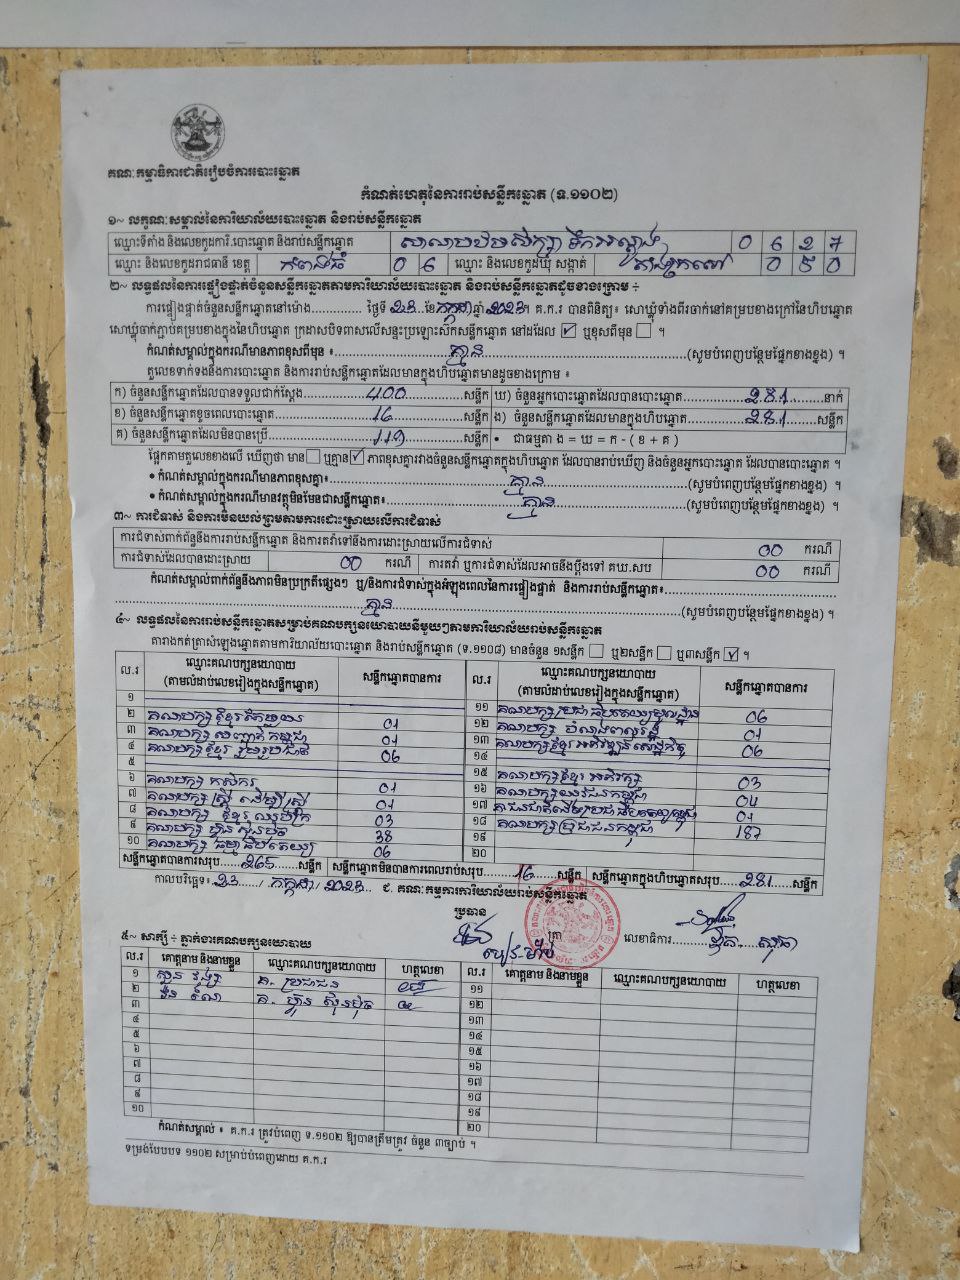 គណៈកម្មាធិការជាតិរៀបចំការបោះឆ្នោត
កំណត់ហេតុនៃការរាប់សន្លឹកឆ្នោត (ទ.១១០២)
១~ លក្ខណៈសម្គាល់នៃការិយាល័យបោះឆ្នោត និងរាប់សន្លឹកឆ្នោត
ឈ្មោះទីតាំង និងលេខកូដការិ.បោះឆ្នោត និងរាប់សន្លឹកឆ្នោត សាលាបឋមសិក្សា ទឹកអណ្តូង 0 6 2 7
ឈ្មោះ និងលេខកូដរាជធានី ខេត្ត កំពង់ធំ 0 6 ឈ្មោះ និងលេខកូដឃុំ សង្កាត់ 0 5 0
២~ លទ្ធផលនៃការផ្ទៀងផ្ទាត់ចំនួនសន្លឹកឆ្នោតតាមការិយាល័យបោះឆ្នោត និងរាប់សន្លឹកឆ្នោតដូចខាងក្រោម ÷
ការផ្ទៀងផ្ទាត់ចំនួនសន្លឹកឆ្នោតនៅម៉ោង............. ថ្ងៃទី 23 ខែ កក្កដា ឆ្នាំ 2023។ គ.ក.រ បានពិនិត្យ៖ សោឃ្លុំទាំងពីរចាក់នៅគម្របខាងក្រៅនៃហិបឆ្នោត
សោឃ្លុំចាក់ភ្ជាប់គម្របខាងក្នុងនៃហិបឆ្នោត ក្រដាសបិទពាសលើសន្ទះប្រឡោះស៊កសន្លឹកឆ្នោត នៅដដែល ☑ ឬខុសពីមុន ☐ ។
កំណត់សម្គាល់ក្នុងករណីមានភាពខុសពីមុន ៖ គ្មាន (សូមបំពេញបន្ថែមផ្នែកខាងខ្នង) ។
តួលេខទាក់ទងនឹងការបោះឆ្នោត និងការរាប់សន្លឹកឆ្នោតដែលមានក្នុងហិបឆ្នោតមានដូចខាងក្រោម ៖
ក) ចំនួនសន្លឹកឆ្នោតដែលបានទទួលជាក់ស្តែង 400 សន្លឹក ឃ) ចំនួនអ្នកបោះឆ្នោតដែលបានបោះឆ្នោត 281 នាក់
ខ) ចំនួនសន្លឹកឆ្នោតខូចពេលបោះឆ្នោត សន្លឹក ង) ចំនួនសន្លឹកឆ្នោតដែលមានក្នុងហិបឆ្នោត 281 សន្លឹក
គ) ចំនួនសន្លឹកឆ្នោតដែលមិនបានប្រើ 119 សន្លឹក • ជាធម្មតា ង = ឃ = ក - ( ខ + គ )
ផ្អែកតាមតួលេខខាងលើ ឃើញថា មាន ☐ ឬគ្មាន ☑ ភាពខុសគ្នារវាងចំនួនសន្លឹកឆ្នោតក្នុងហិបឆ្នោត ដែលបានរាប់ឃើញ និងចំនួនអ្នកបោះឆ្នោត ដែលបានបោះឆ្នោត ។
• កំណត់សម្គាល់ក្នុងករណីមានភាពខុសគ្នា៖ គ្មាន (សូមបំពេញបន្ថែមផ្នែកខាងខ្នង) ។
• កំណត់សម្គាល់ក្នុងករណីមានវត្ថុមិនមែនជាសន្លឹកឆ្នោត៖ គ្មាន (សូមបំពេញបន្ថែមផ្នែកខាងខ្នង) ។
៣~ ការជំទាស់ និងការមិនយល់ព្រមតាមការដោះស្រាយលើការជំទាស់
ការជំទាស់ពាក់ព័ន្ធនឹងការរាប់សន្លឹកឆ្នោត និងការតវ៉ាទៅនឹងការដោះស្រាយលើការជំទាស់ 00 ករណី
ការជំទាស់ដែលបានដោះស្រាយ 00 ករណី ការតវ៉ា ឬការជំទាស់ដែលអាចនឹងប្តឹងទៅ គឃ.សប 00 ករណី
កំណត់សម្គាល់ពាក់ព័ន្ធនឹងភាពមិនប្រក្រតីផ្សេងៗ ឬ/និងការជំទាស់ក្នុងអំឡុងពេលនៃការផ្ទៀងផ្ទាត់ និងការរាប់សន្លឹកឆ្នោត៖
គ្មាន (សូមបំពេញបន្ថែមផ្នែកខាងខ្នង) ។
៤~ លទ្ធផលនៃការរាប់សន្លឹកឆ្នោតសម្រាប់គណបក្សនយោបាយនីមួយៗតាមការិយាល័យរាប់សន្លឹកឆ្នោត
តារាងកត់ត្រាសំឡេងឆ្នោតតាមការិយាល័យបោះឆ្នោត និងរាប់សន្លឹកឆ្នោត (ទ.១១០៨) មានចំនួន ១សន្លឹក ☐ ឬ២សន្លឹក ☐ ឬ៣សន្លឹក ☑ ។
ល.រ ឈ្មោះគណបក្សនយោបាយ (តាមលំដាប់លេខរៀងក្នុងសន្លឹកឆ្នោត) សន្លឹកឆ្នោតបានការ ល.រ ឈ្មោះគណបក្សនយោបាយ (តាមលំដាប់លេខរៀងក្នុងសន្លឹកឆ្នោត) សន្លឹកឆ្នោតបានការ
១
២ គណបក្ស ខ្មែរតែមួយ 01
៣ គណបក្ស សញ្ជាតិកម្ពុជា 01
៤ គណបក្សខ្មែរ រួបរួមជាតិ 06
៥
៦ គណបក្ស កសិករ 01
៧ គណបក្ស ស្ត្រី ដើម្បីស្ត្រី 01
៨ គណបក្ស ខ្មែរ ឈប់ក្រ 03
៩ គណបក្ស ហ៊្វុនស៊ិនប៉ិច 38
១០ គណបក្ស ធម្មាធិបតេយ្យ 06
១១ គណបក្សប្រជាធិបតេយ្យមូលដ្ឋាន 06
១២ គណបក្ស បំណងពលរដ្ឋ 01
១៣ គណបក្សខ្មែរអភិវឌ្ឍន៍សេដ្ឋកិច្ច 06
១៤
១៥ គណបក្សខ្មែរ អភិរក្ស 03
១៦ គណបក្សយុវជនកម្ពុជា 04
១៧ 01
១៨ គណបក្សប្រជាជនកម្ពុជា 187
១៩
២០
សន្លឹកឆ្នោតបានការសរុប 265 សន្លឹក សន្លឹកឆ្នោតមិនបានការពេលរាប់សរុប 16 សន្លឹក សន្លឹកឆ្នោតក្នុងហិបឆ្នោតសរុប 281 សន្លឹក
កាលបរិច្ឆេទ៖ 23 / កក្កដា / 2023 ជ. គណៈកម្មការការិយាល័យរាប់សន្លឹកឆ្នោត
ប្រធាន
ត្រា លេខាធិការ
៥~ សាក្សី ÷ ភ្នាក់ងារគណបក្សនយោបាយ
ល.រ គោត្តនាម និងនាមខ្លួន ឈ្មោះគណបក្សនយោបាយ ហត្ថលេខា ល.រ គោត្តនាម និងនាមខ្លួន ឈ្មោះគណបក្សនយោបាយ ហត្ថលេខា
១ គ. ប្រជាជន ១១
២ គ. ហ៊្វុនស៊ិនប៉ិច ១២
៣ ១៣
៤ ១៤
៥ ១៥
៦ ១៦
៧ ១៧
៨ ១៨
៩ ១៩
១០ ២០
កំណត់សម្គាល់ ៖ គ.ក.រ ត្រូវបំពេញ ទ.១១០២ ឱ្យបានត្រឹមត្រូវ ចំនួន ៣ច្បាប់ ។
ទម្រង់បែបបទ ១១០២ សម្រាប់បំពេញដោយ គ.ក.រ